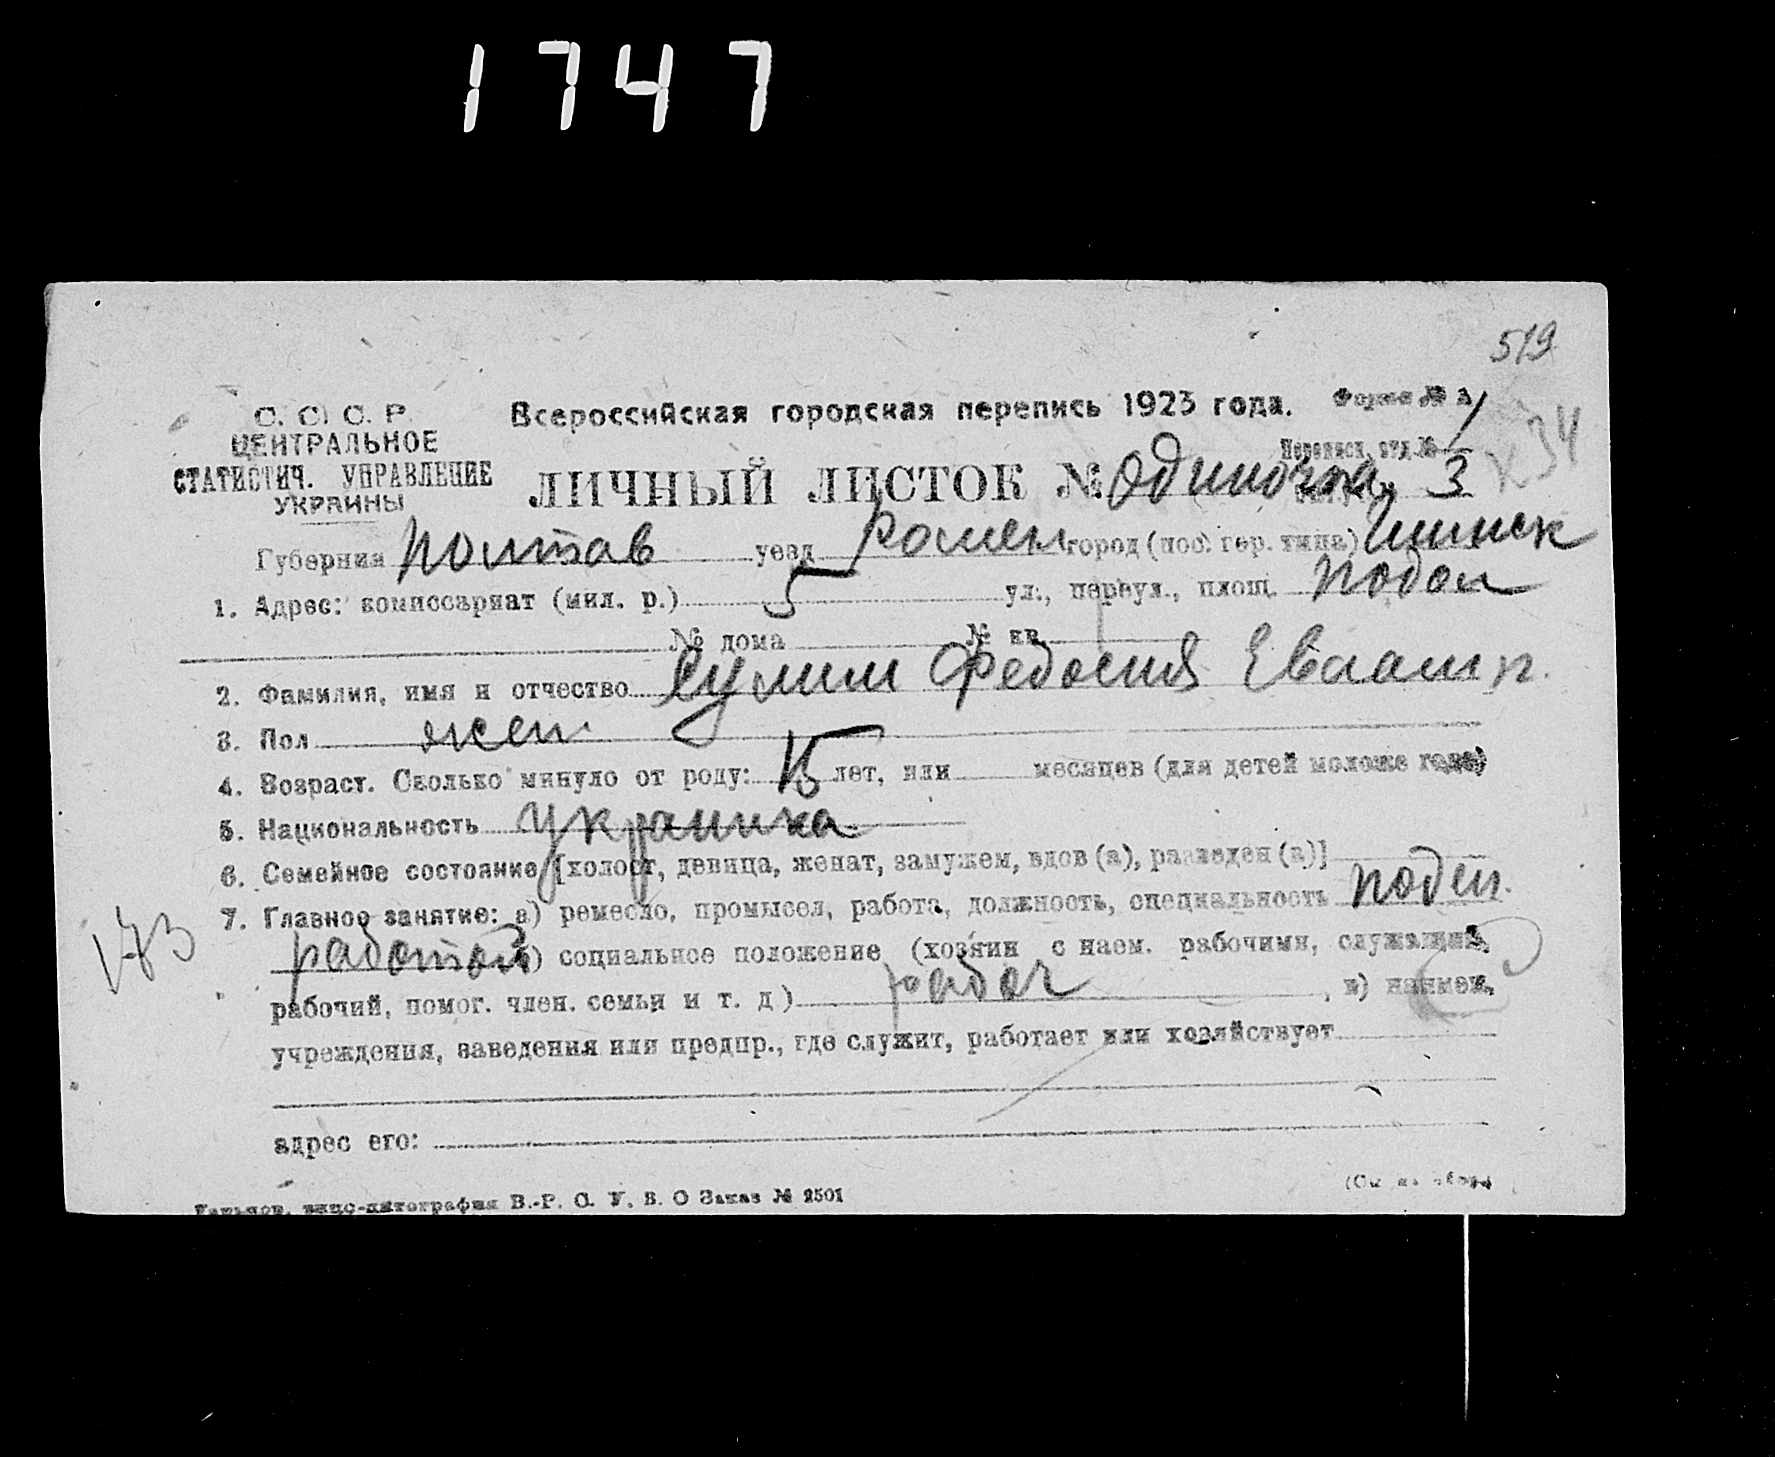 1747
519
С. С. С. Р.
ЦЕНТРАЛЬНОЕ
СТАТИСТИЧ. УПРАВЛЕНИЕ
УКРАИНЫ
Всероссийская городская перепись 1923 года.
Форма № 1
Переписн. отд. № 1
34
ЛИЧНЫЙ ЛИСТОК № Одиночка 3
Губерния Полтав уезд Ромен город (пос. гор. типа)
1. Адрес: комиссариат (мил. р.) 5 ул., переул., площ. Подол
№ дома № кв.
2. Фамилия, имя и отчество Сулим Федосия
3. Пол жен
4. Возраст. Сколько минуло от роду: 15 лет, или месяцев (для детей моложе года)
5. Национальность Украинка
6. Семейное состояние [холост, девица, женат, замужем, вдов (а), разведен (а)]
7. Главное занятие: а) ремесло, промысел, работа, должность, специальность поден.
173
б) социальное положение (хозяин с наем. рабочими, служащий,
рабочий, помог. член. семьи и т. д.) рабоч , в) наимен.
учреждения, заведения или предпр., где служит, работает или хозяйствует
адрес его:
типо-литография В.-Р. С. У. В. О Заказ № 2501